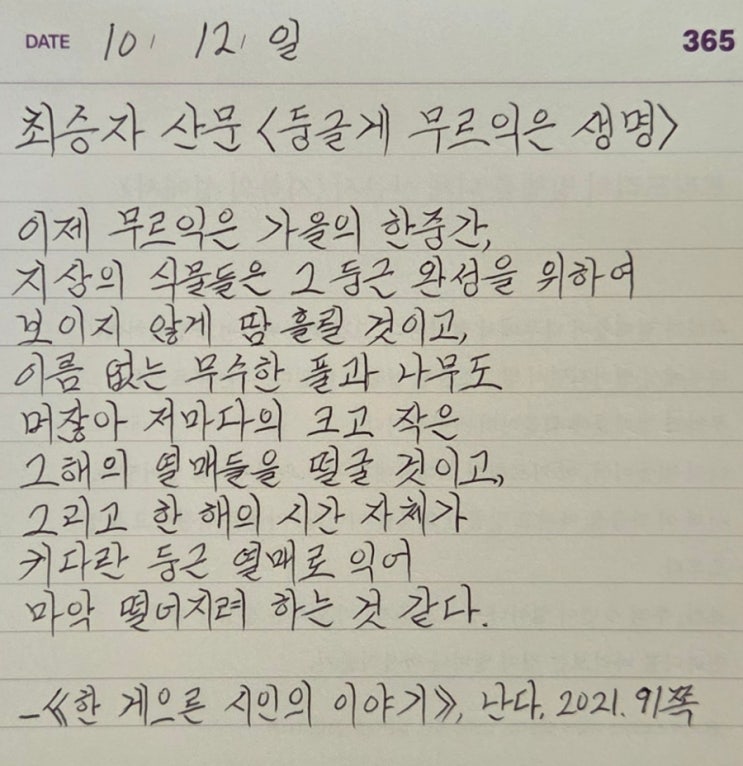 DATE 10. 12. 일 365
최승자 산문 <둥글게 무르익은 생명>
이제 무르익은 가을의 한중간,
지상의 식물들은 그 둥근 완성을 위하여
보이지 않게 땀 흘릴 것이고,
이름 없는 무수한 풀과 나무도
머잖아 저마다의 크고 작은
그해의 열매들을 떨굴 것이고,
그리고 한 해의 시간 자체가
커다란 둥근 열매로 익어
마악 떨어지려 하는 것 같다.
-《한 게으른 시인의 이야기》, 난다, 2021. 91쪽